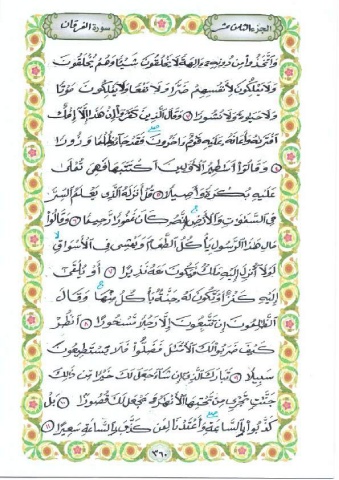 الجزء الثامن عشر
سورة الفرقان
وَاتَّخَذُوا مِن دُونِهِ ءَالِهَةً لَّا يَخْلُقُونَ شَيْئًا وَهُمْ يُخْلَقُونَ
وَلَا يَمْلِكُونَ لِأَنفُسِهِمْ ضَرًّا وَلَا نَفْعًا وَلَا يَمْلِكُونَ مَوْتًا
وَلَا حَيَوٰةً وَلَا نُشُورًا ٣ وَقَالَ الَّذِينَ كَفَرُوا إِنْ هَٰذَا إِلَّا إِفْكٌ
افْتَرَىٰهُ وَأَعَانَهُ عَلَيْهِ قَوْمٌ ءَاخَرُونَ فَقَدْ جَاءُو ظُلْمًا وَزُورًا
٤ وَقَالُوا أَسَٰطِيرُ الْأَوَّلِينَ اكْتَتَبَهَا فَهِىَ تُمْلَىٰ
عَلَيْهِ بُكْرَةً وَأَصِيلًا ٥ قُلْ أَنزَلَهُ الَّذِى يَعْلَمُ السِّرَّ
فِى السَّمَٰوَٰتِ وَالْأَرْضِ إِنَّهُ كَانَ غَفُورًا رَّحِيمًا ٦ وَقَالُوا
مَالِ هَٰذَا الرَّسُولِ يَأْكُلُ الطَّعَامَ وَيَمْشِى فِى الْأَسْوَاقِ
لَوْلَا أُنزِلَ إِلَيْهِ مَلَكٌ فَيَكُونَ مَعَهُ نَذِيرًا ٧ أَوْ يُلْقَىٰ
إِلَيْهِ كَنزٌ أَوْ تَكُونُ لَهُ جَنَّةٌ يَأْكُلُ مِنْهَا وَقَالَ
الظَّٰلِمُونَ إِن تَتَّبِعُونَ إِلَّا رَجُلًا مَّسْحُورًا ٨ انظُرْ
كَيْفَ ضَرَبُوا لَكَ الْأَمْثَٰلَ فَضَلُّوا فَلَا يَسْتَطِيعُونَ
سَبِيلًا ٩ تَبَارَكَ الَّذِى إِن شَاءَ جَعَلَ لَكَ خَيْرًا مِّن ذَٰلِكَ
جَنَّٰتٍ تَجْرِى مِن تَحْتِهَا الْأَنْهَٰرُ وَيَجْعَل لَّكَ قُصُورًا ١٠ بَلْ
كَذَّبُوا بِالسَّاعَةِ وَأَعْتَدْنَا لِمَن كَذَّبَ بِالسَّاعَةِ سَعِيرًا ١١
٣٦٠